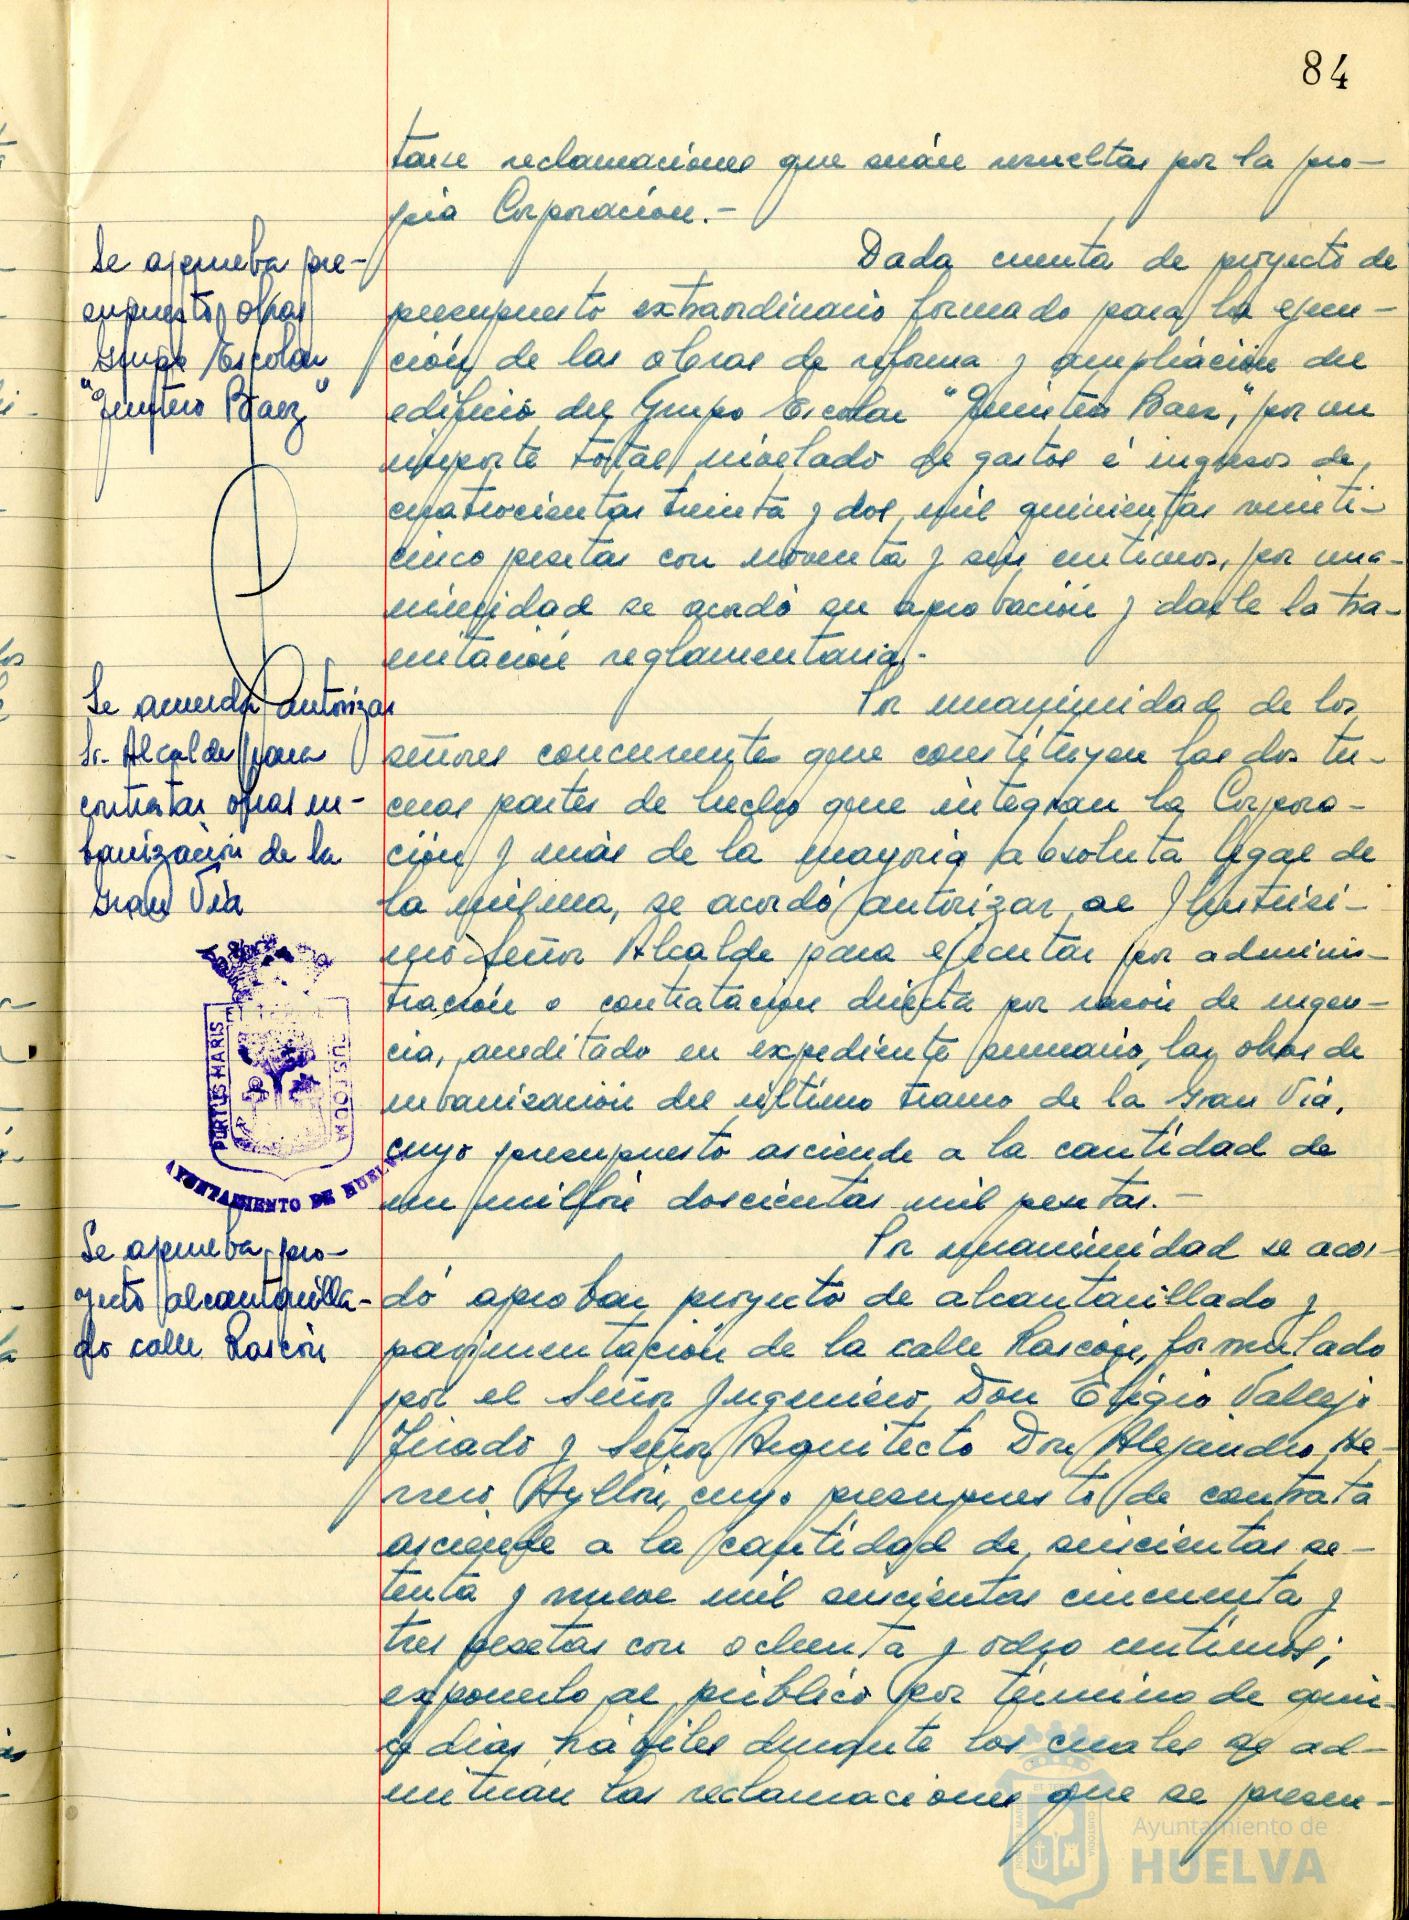 84
tarse reclamaciones que serán resueltas por la pro-
pia Corporación.-
Se aprueba pre-
supuesto obras
Grupo Escolar
"Quintero Baez"
Dada cuenta de proyecto de
presupuesto extraordinario formado para la ejecu-
ción de las obras de reforma y ampliación del
edificio del Grupo Escolar "Quintero Baez", por un
importe total nivelado de gastos é ingresos de
cuatrocientas treinta y dos mil quinientas veinti-
cinco pesetas con noventa y seis centimos, por una-
nimidad se acordó su aprobación y darle la tra-
mitación reglamentaria.-
Se acuerda autorizar
Sr. Alcalde para
contratar obras ur-
banización de la
Gran Vía
Por unanimidad de los
señores concurrentes que constituyen las dos ter-
ceras partes de hecho que integran la Corpora-
ción y más de la mayoria absoluta legal de
la misma, se acordó autorizar al Ilustrisi-
mo Señor Alcalde para ejecutar por adminis-
tración o contratacion directa por razón de urgen-
cia, acreditado en expediente sumario, las obras de
urbanización del ultimo tramo de la Gran Vía,
cuyo presupuesto asciende a la cantidad de
un millón doscientas mil pesetas.-
PORTUS MARIS ET TERRE CUSTODIA
AYUNTAMIENTO DE HUELVA
Se aprueba pro-
yecto alcantarilla-
do calle Rascón
Por unanimidad se acor-
dó aprobar proyecto de alcantarillado y
pavimentación de la calle Rascón, formulado
por el Señor Ingeniero Don Eligio Vallejo
Tirado y Señor Arquitecto Don Alejandro He-
rrero Ayllón, cuyo presupuesto de contrata
asciende a la cantidad de seiscientas se-
tenta y nueve mil seiscientas cincuenta y
tres pesetas con ochenta y ocho centimos;
exponerlo al público por término de quin-
ce dias hábiles durante los cuales se ad-
mitirán las reclamaciones que se presen-
Ayuntamiento de
HUELVA